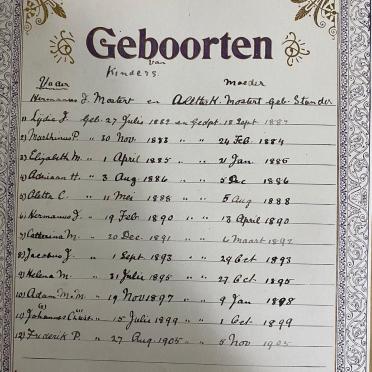 Geboorten
van
Kinders
Vader Moeder
Hermanus J. Mostert en Aletta H. Mostert Geb. Stander
1) Lydia J. Geb. 27 Julie 1882 en Gedpt. 18 Sept 1882
2) Marthinus P. " 30 Nov. 1883 " " 24 Feb. 1884
3) Elizabeth M. " 1 April 1885 " " 21 Jun 1885
4) Adriaan H. " 3 Aug 1886 " " 5 Dec 1886
5) Aletta C. " 11 Mei 1888 " " 5 Aug 1888
6) Hermanus J. " 19 Feb 1890 " " 13 April 1890
7) Catherina M. " 20 Dec. 1891 " " 6 Maart 1892
8) Jacobus J. " 1 Sept 1893 " " 29 Oct 1893
9) Helena M. " 31 Julie 1895 " " 27 Oct. 1895
10) Adam. M. M. " 19 Nov 1897 " " 9 Jan 1898
11) Johannes Christ. " 15 Julie 1899 " " 1 Oct 1899
12) Frederik P. " 27 Aug. 1905 " " 5 Nov 1905